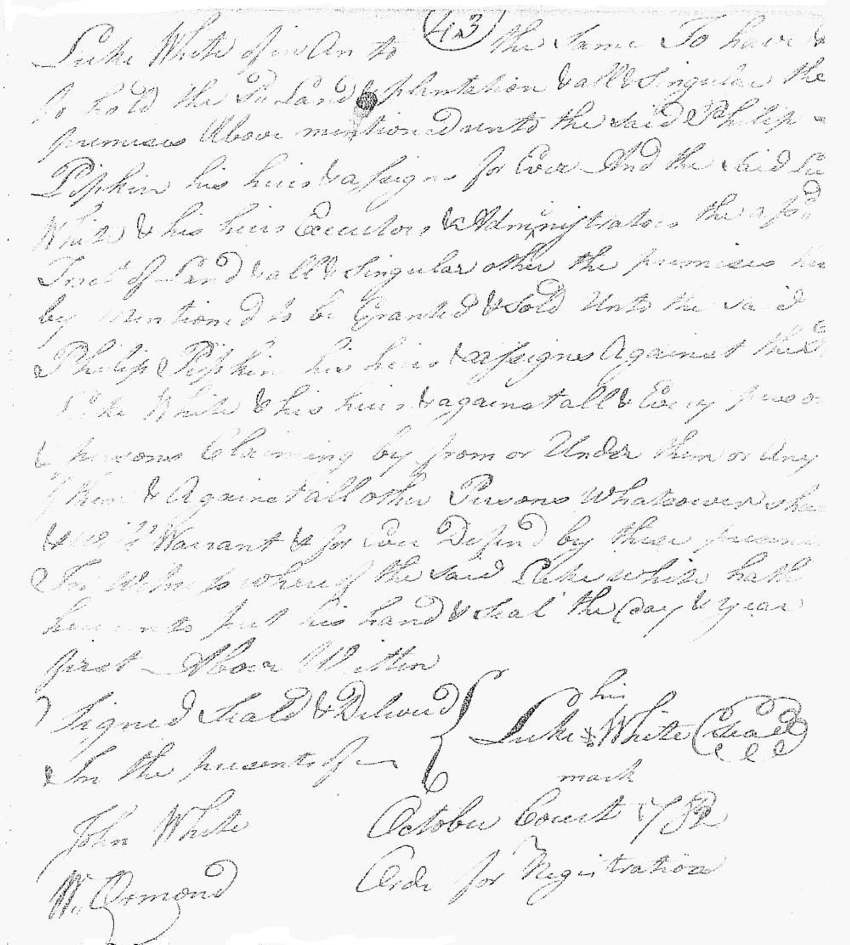 43
Luke White of in An to the same To have &
to hold the Sd Land & plantation & all & Singular the
premises Above mentioned unto the said Philip
Pipkin his heirs & assigns for Ever And the said Lu
White & his heirs Executors & Administrators the afsd
Tract of Land & all & Singular other the premises her
by mentioned to be Granted & Sold Unto the said
Philip Pipkin his heirs & assigns Against the Sd
Luke White & his heirs & against all & Every person
& persons Claiming by from or Under them or any
of them & Against all other Persons Whatsoever shall
& will Warrant & for Ever Defend by these presents
In Witness whereof the said Luke White hath
hereunto put his hand & Seal the Day & year
first Above Witten
Signed Seald & Deliverd
In the presents of
his
Luke White Seal
mark
John White
Wm Ormond
October Court 1782
Orde for Registration